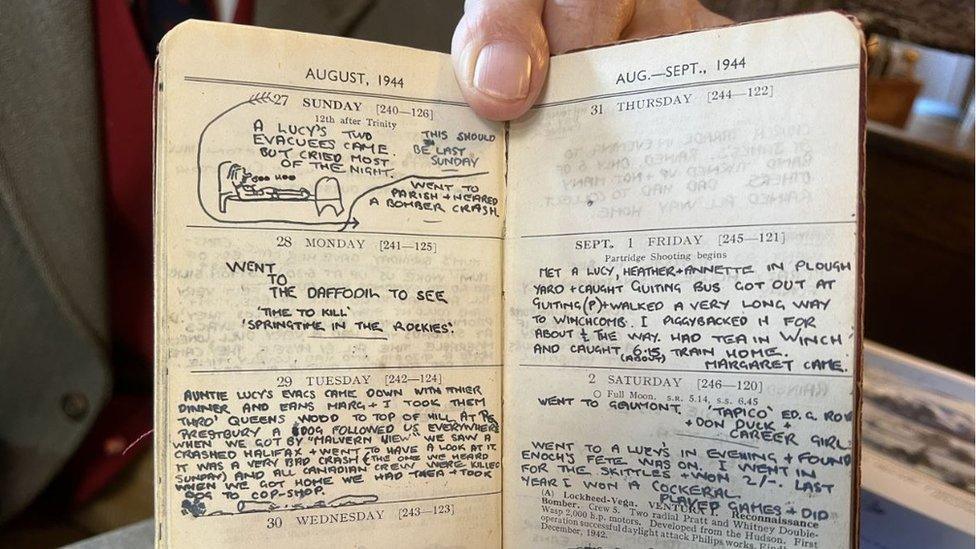 AUGUST, 1944
27 SUNDAY [240—126]
12th after Trinity
A LUCY'S TWO
EVACUEES CAME.
BUT CRIED MOST
OF THE NIGHT.
THIS SHOULD
BE LAST
SUNDAY
WENT TO
PARISH + HEARD
A BOMBER CRASH
28 MONDAY [241—125]
WENT
TO
THE DAFFODIL TO SEE
'TIME TO KILL'
'SPRINGTIME IN THE ROCKIES'.
29 TUESDAY [242—124]
AUNTIE LUCY'S EVACS CAME DOWN WITH THIER
DINNER AND EANS MARG + I TOOK THEM
THRO' QUEENS WOOD TO TOP OF HILL. AT
PRESTBURY A DOG FOLLOWED US EVERYWHERE
WHEN WE GOT BY "MALVERN VIEW" WE SAW A
CRASHED HALIFAX + WENT TO HAVE A LOOK AT IT
IT WAS A VERY BAD CRASH (THE ONE WE HEARD
SUNDAY) AND ALL CANADIAN CREW WERE KILLED
WHEN WE GOT HOME WE HAD THEA + TOOK
DOG TO COP-SHOP.
30 WEDNESDAY [243—123]
AUG.—SEPT., 1944
31 THURSDAY [244—122]
SEPT. 1 FRIDAY [245—121]
Partridge Shooting begins
MET A LUCY, HEATHER + ANNETTE IN PLOUGH
YARD + CAUGHT GUITING BUS GOT OUT AT
GUITING (P) + WALKED A VERY LONG WAY
TO WINCHCOMB. I PIGGYBACKED H FOR
ABOUT ½ THE WAY. HAD TEA IN WINCH
AND CAUGHT 6.15 (ABOUT) TRAIN HOME.
MARGARET CAME.
2 SATURDAY [246—120]
Full Moon. S.R. 5.14, S.S. 6.45
WENT TO GAUMONT. 'TAPICO' ED. G. ROB
+ DON DUCK +
CAREER GIRL
WENT TO A LUCY'S IN EVENING + FOUND
ENOCH'S FETE WAS ON. I WENT IN
FOR THE SKITTLES + WON 2/-. LAST
YEAR I WON A COCKERAL.
PLAYED GAMES + DID
(A) Lockheed-Vega. VENTURA. Reconnaissance
Bomber. Crew 5. Two radial Pratt and Whitney Double-
Wasp 2,000 h.p. motors. Developed from the Hudson. First
operation successful daylight attack Philips works,
December, 1942.